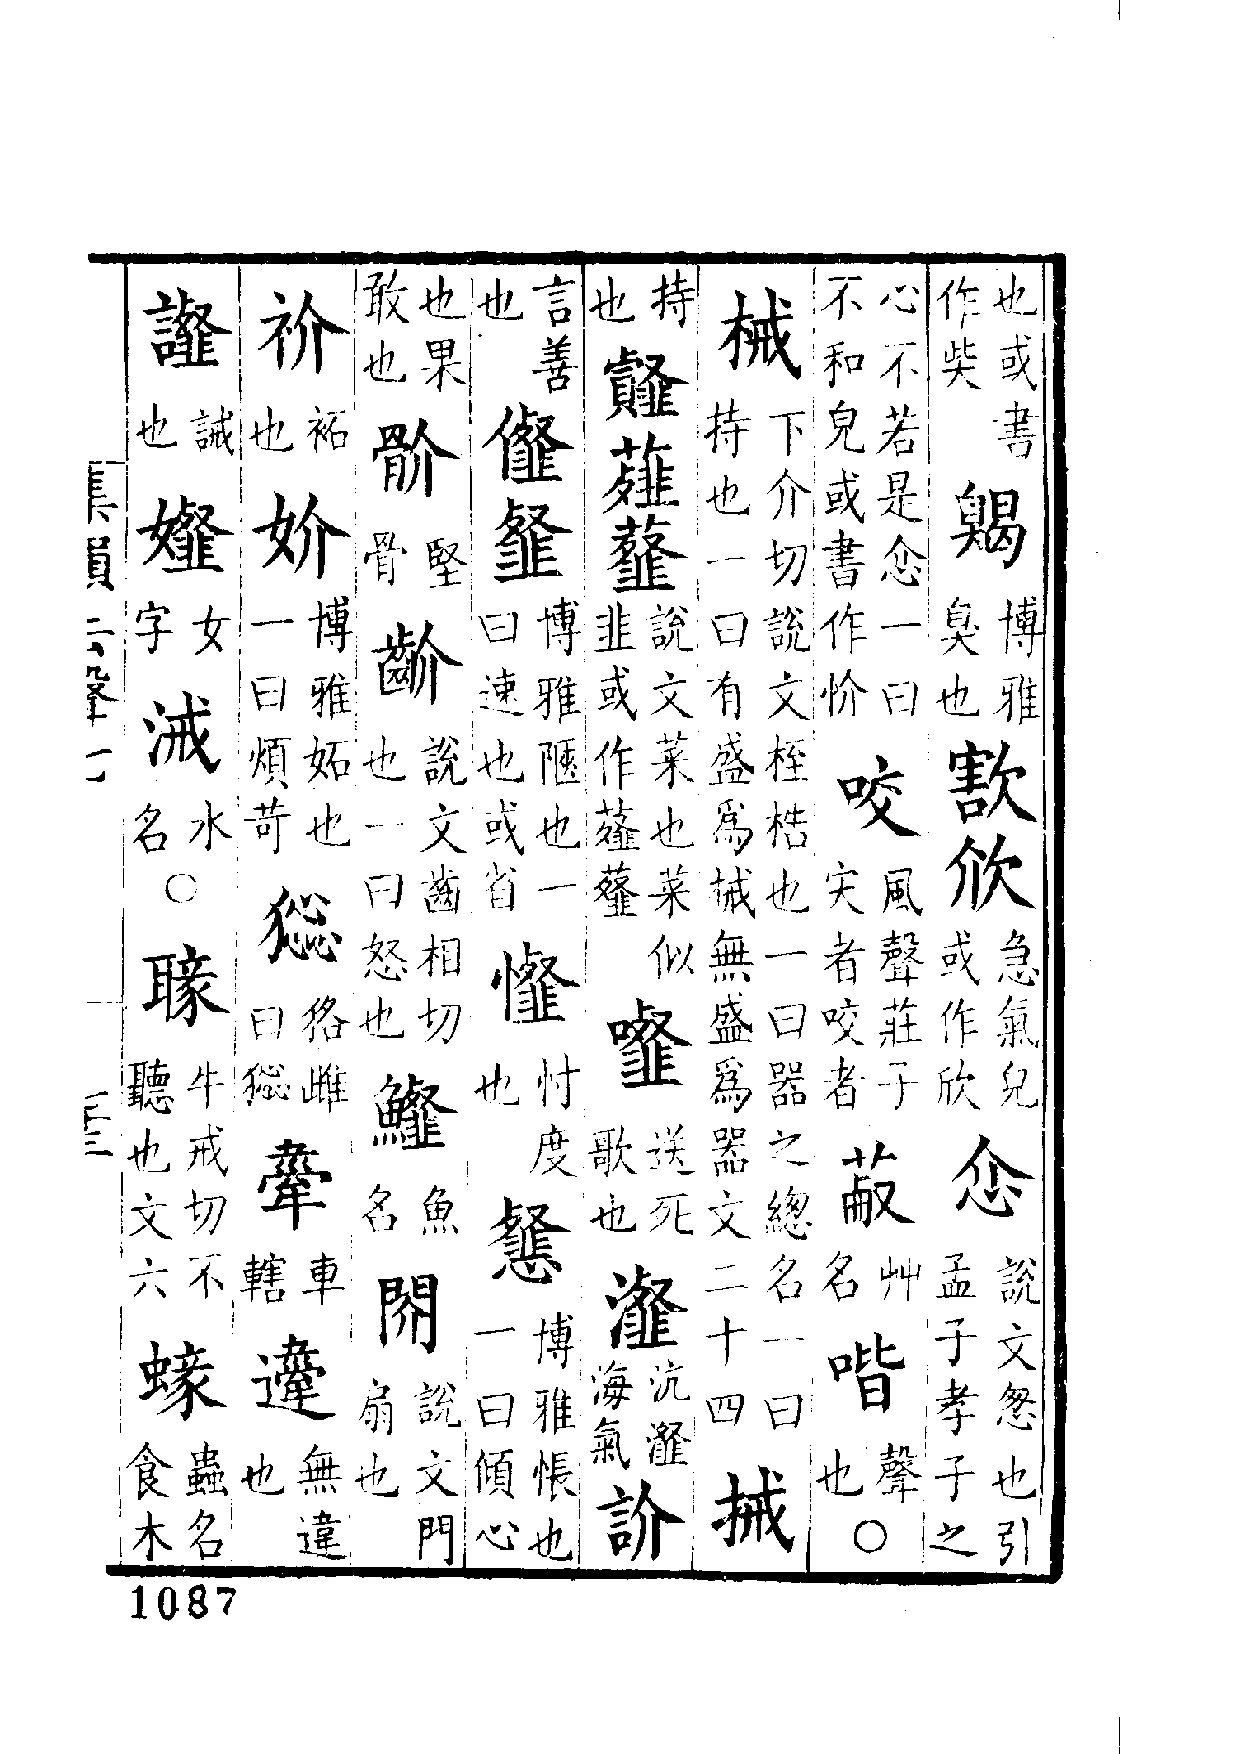 也或書作㭰䶎博雅臭也㱉欣急氣皃或作欣忦說文忽也引孟子孝子之
心不若是忦一曰不和皃或書作㤉咬风聲莊子宎者咬者䕓艸名喈聲也○
械下介切說文桎梏也一曰器之總名一曰持也一曰有盛爲械無盛爲器文二十四㭏
持也䪥薤䪥說文菜也菜似韭或作薤䪥㘋送死歌也瀣沆瀣海氣䚸
言善也㒠䪥博雅陿也一曰速也或省㦪忖度也㦪博雅悵也一曰傾心
也果敢也骱堅骨齘說文齒相切也一曰怒也䲒魚名䦏說文門扇也
衸袥也妎博雅妬也一曰煩苛㺅㺃雌曰㺅䡔車轄䢱無違也
䜕誡也㜾女字㳦水名○䏌牛戒切不聽也文六䗕蟲名食木
集韻去聲七
1087